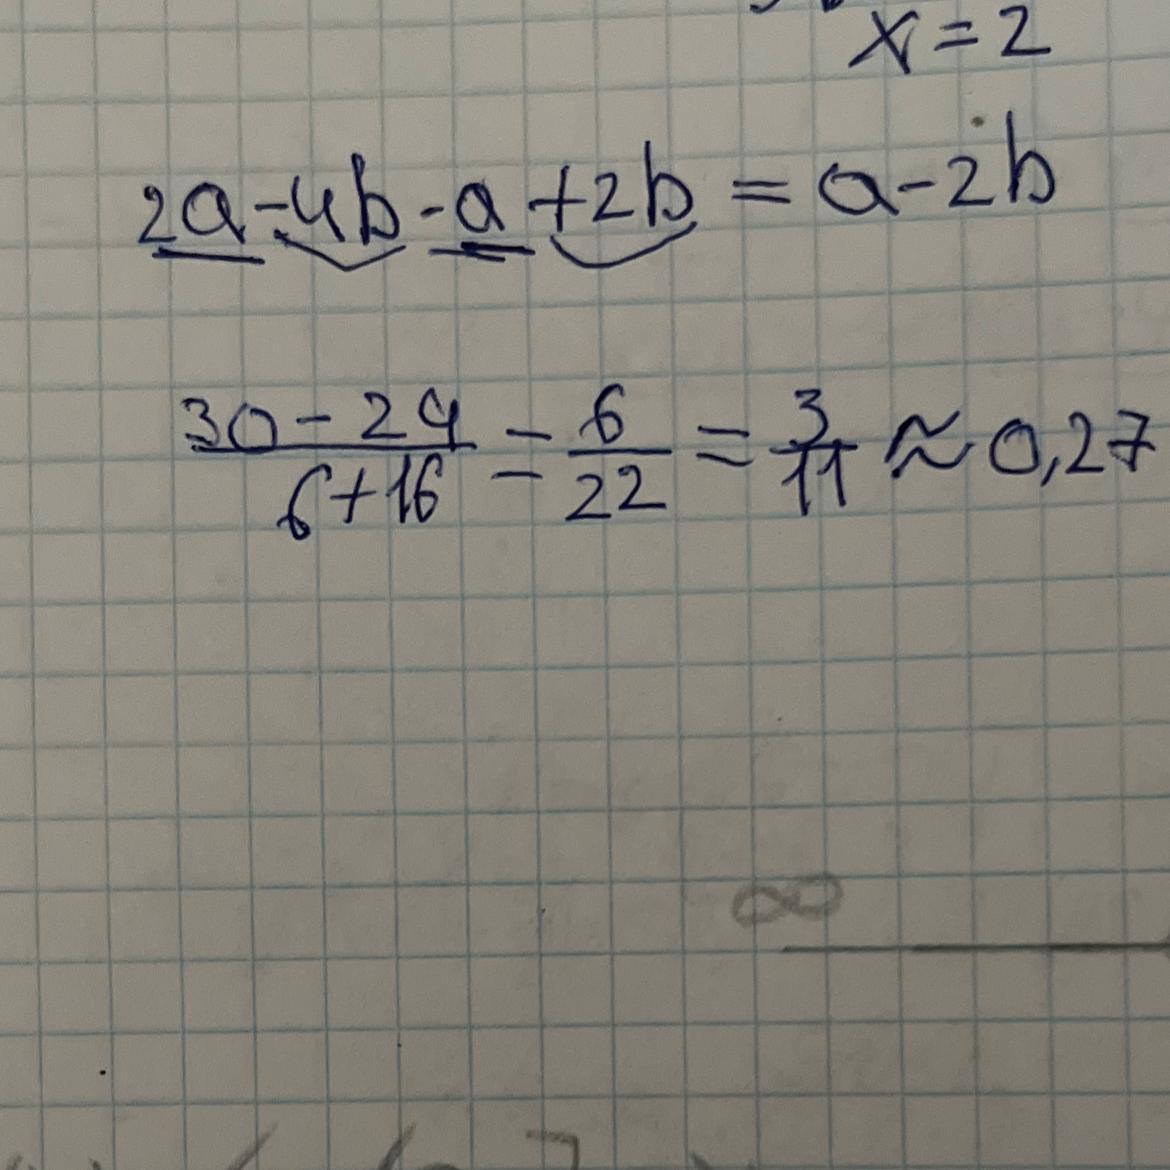 x = 2
2a - 4b - a + 2b = a - 2b
30 - 24 / 6 + 16 = 6 / 22 = 3 / 11 ≈ 0,27
∞